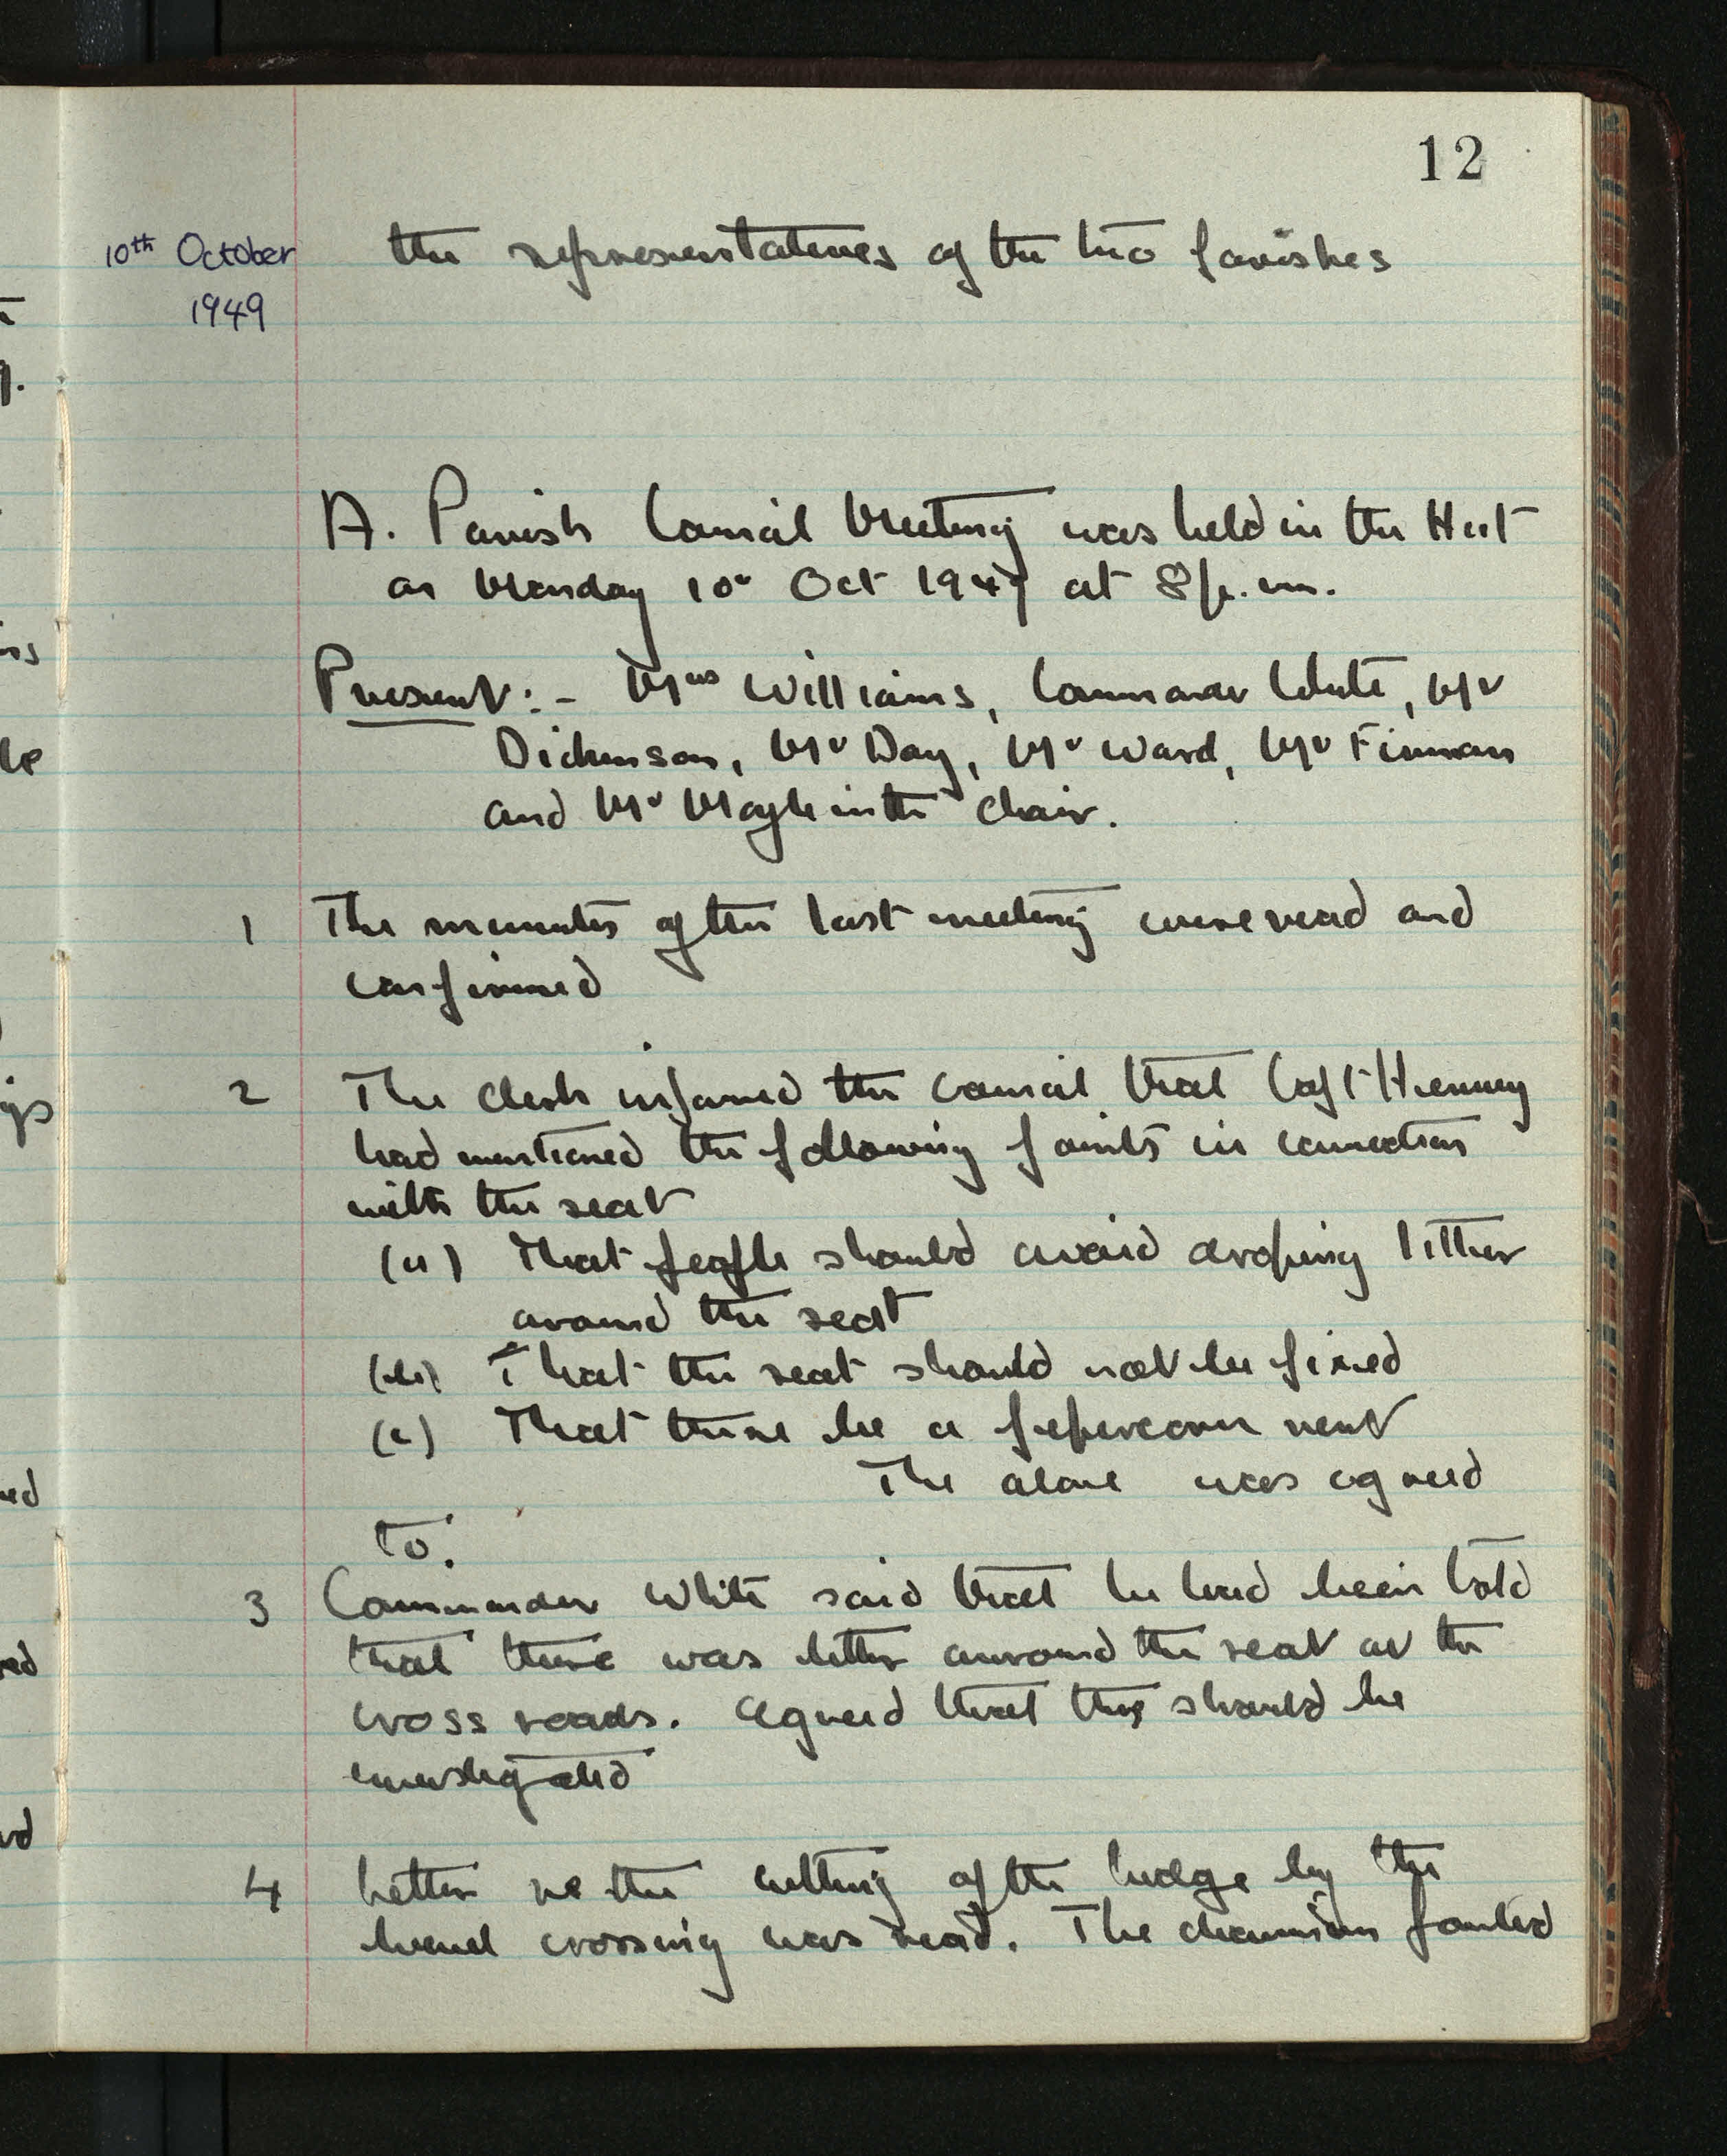 12
10th October
1949
the representatives of the two parishes
A. Parish Council Meeting was held in the Hut
on Monday 10th Oct 1949 at 8 p.m.
Present:- Mrs Williams, Commander White, Mr
Dickinson, Mr Day, Mr Ward, Mr Finman
and Mr Mayle in the chair.
1 The minutes of the last meeting were read and
confirmed
2 The clerk informed the council that Capt
had mentioned the following points in connection
with the seat
(a) That people should avoid droping litter
around the seat
(b) That the seat should not be fixed
(c) That there be a peppercorn rent
The above was agreed
to.
3 Commander White said that he had been told
that there was litter around the seat at the
cross roads. Agreed that this should be
investigated
4 Letter re the cutting of the hedge by the
level crossing was read. The chairman pointed